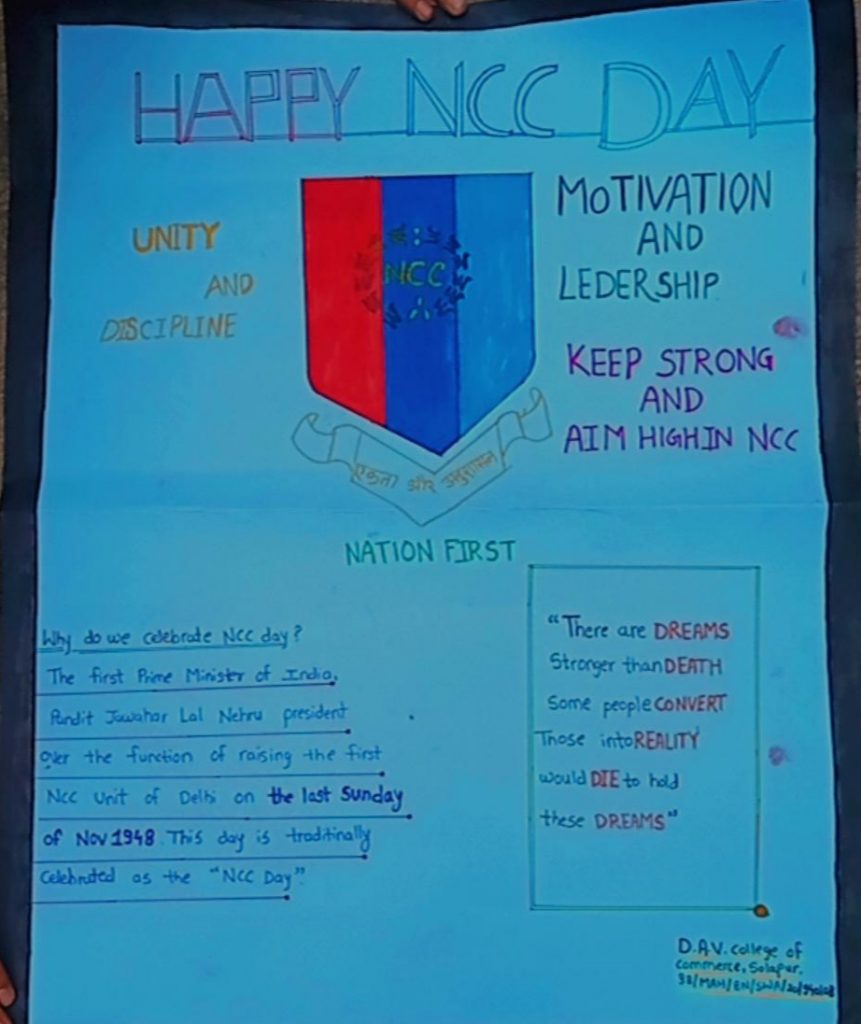 HAPPY NCC DAY
UNITY
AND
DISCIPLINE
NCC
एकता और अनुशासन
MOTIVATION
AND
LEDERSHIP
KEEP STRONG
AND
AIM HIGH IN NCC
NATION FIRST
Why do we celebrate NCC day?
The first Prime Minister of India,
Pandit Jawahar Lal Nehru president
over the function of raising the first
NCC Unit of Delhi on the last Sunday
of Nov 1948. This day is traditinally
Celebrated as the "NCC Day".
"There are DREAMS
Stronger than DEATH
Some people CONVERT
Those into REALITY
would DIE to hold
these DREAMS"
D.A.V. college of
commerce, Solapur.